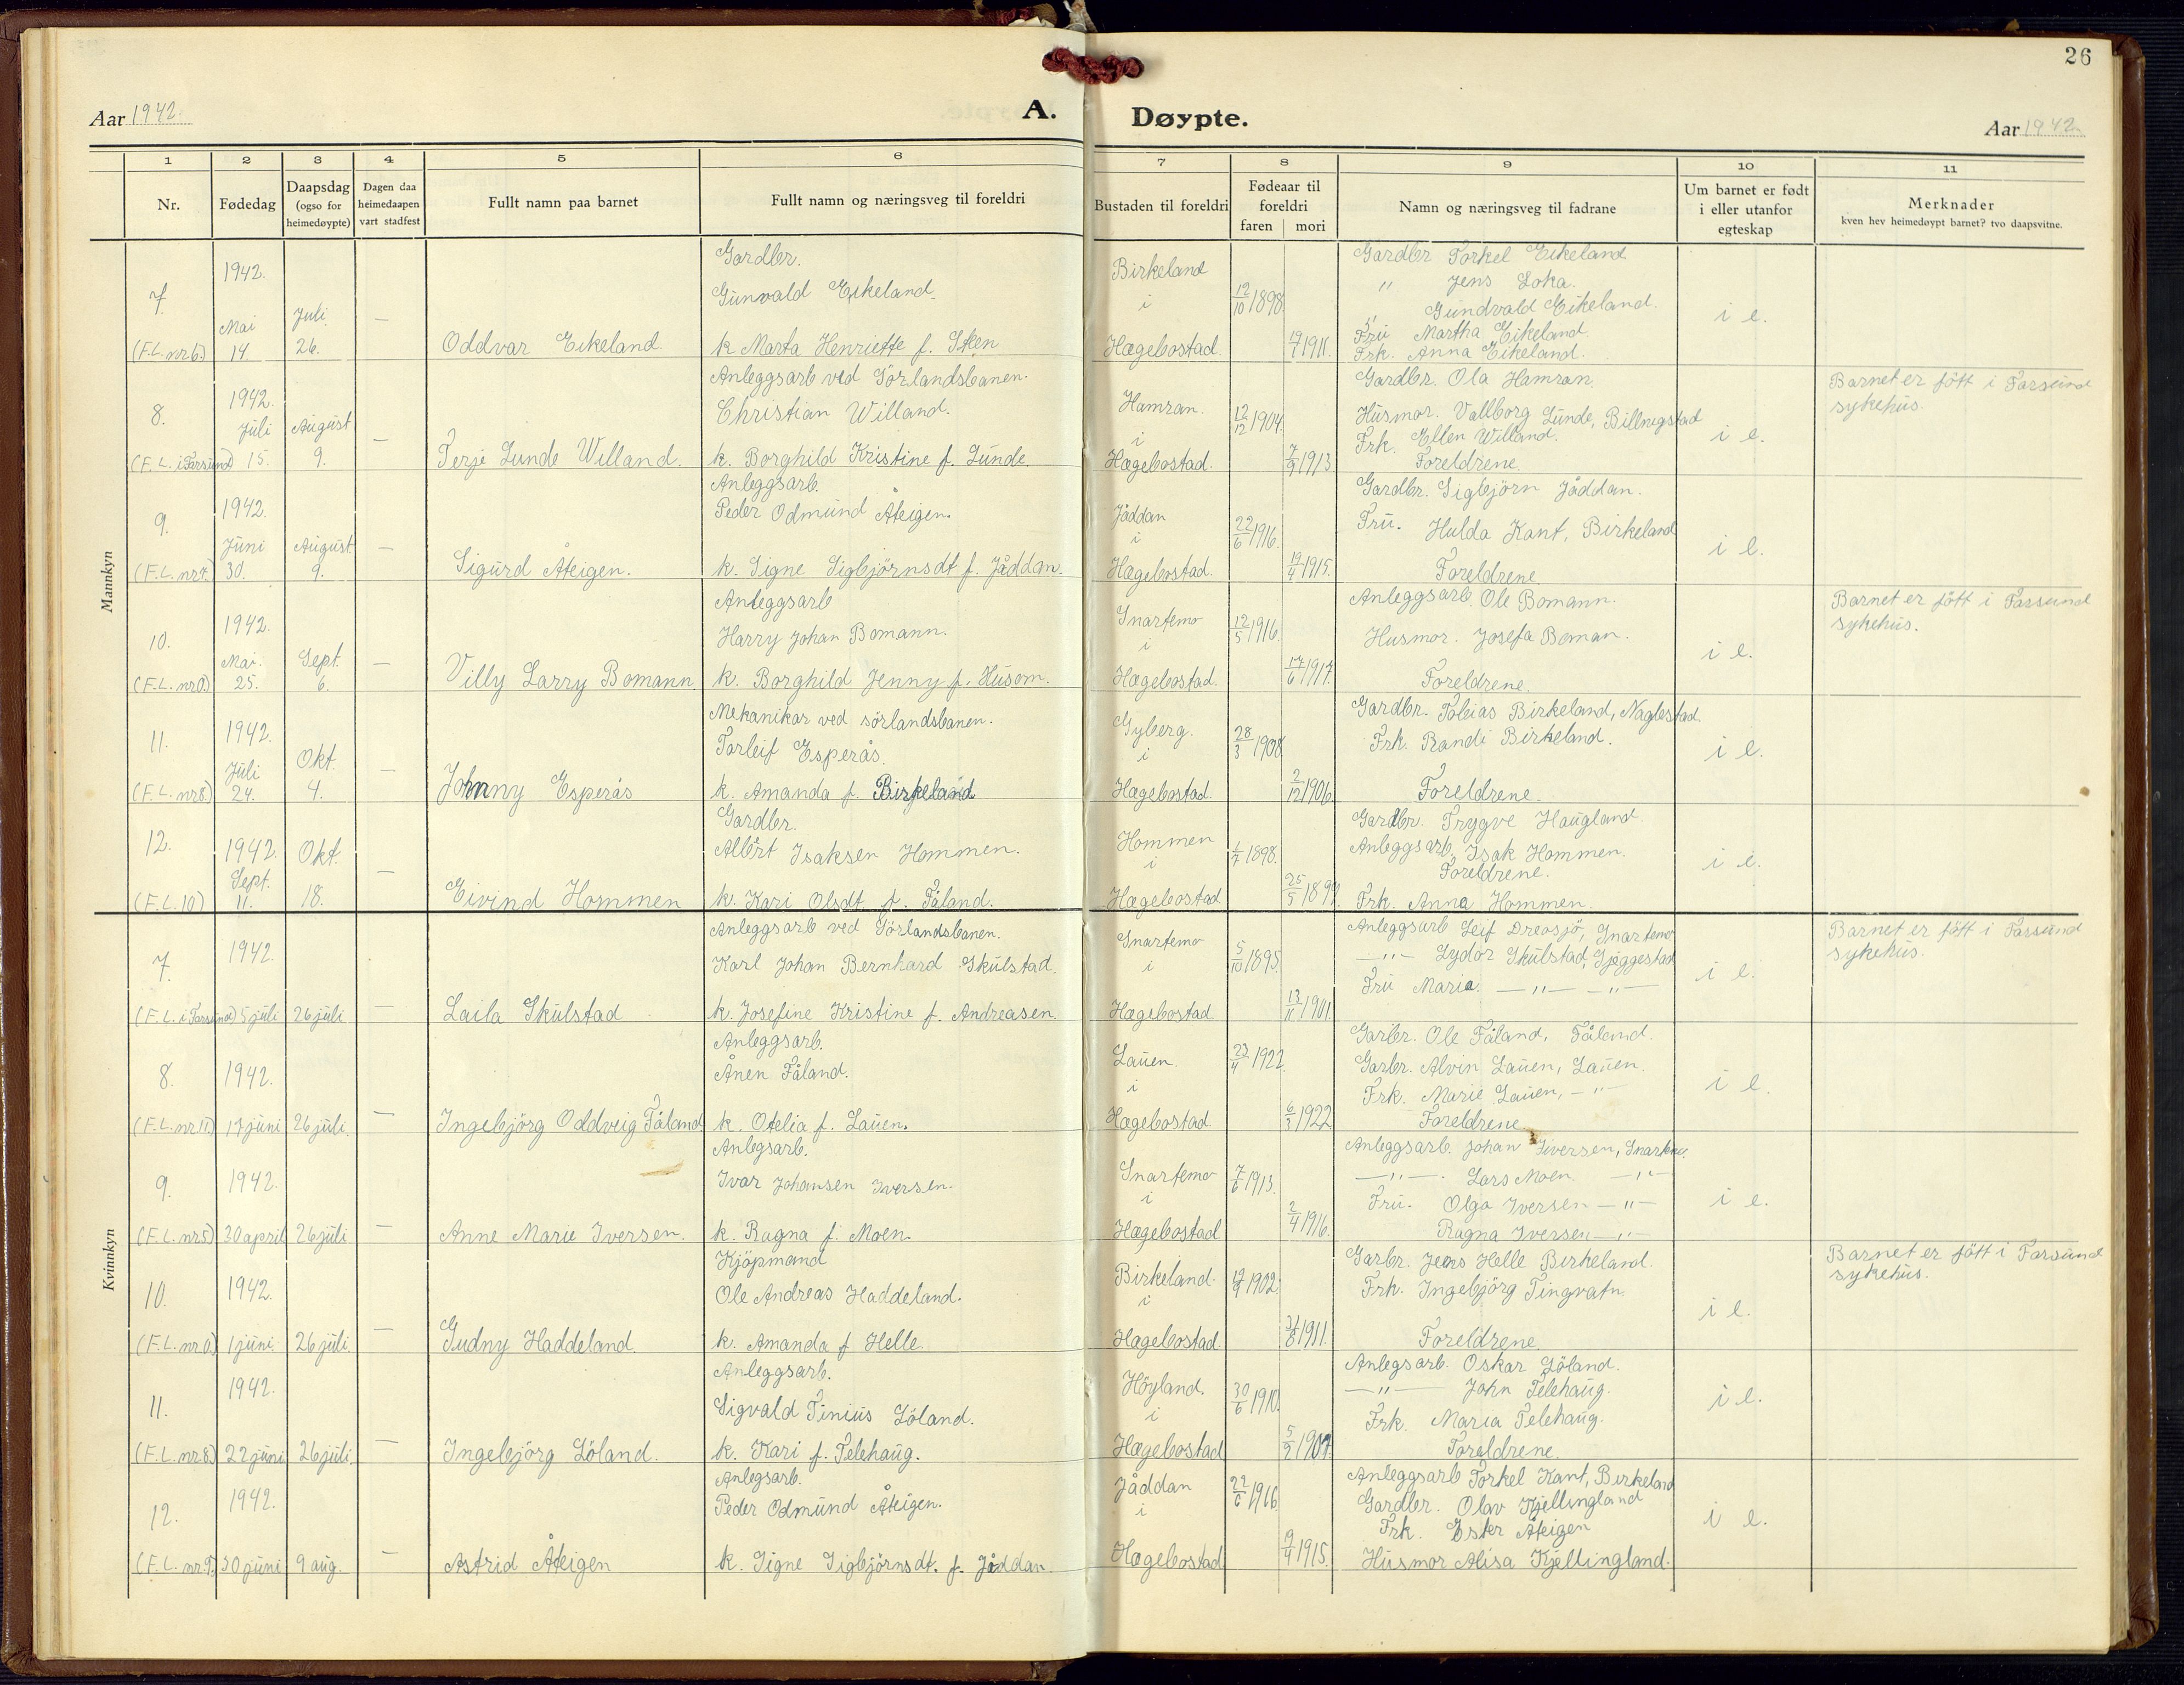 26
Aar 1942.
A. Døypte.
Aar 1942.
1 2 3 4 5 6 7 8 9 10 11
Nr.
Fødedag
Daapsdag
(ogso for
heimedøypte)
Dagen daa
heimedaapen
vart stadfest
Fullt namn paa barnet
Fullt namn og næringsveg til foreldri
Bustaden til foreldri
Fødeaar til
foreldri
faren mori
Namn og næringsveg til fadrane
Um barnet er født
i eller utanfor
egteskap
Merknader
kven hev heimedøypt barnet? tvo daapsvitne.
Mannkyn
7.
(F.L. nr 6.)
1942.
Mai
14
Juli
26.
—
Oddvar Eikeland
Gardbr.
Gunvald Eikeland.
k Marta Henriette f. Sken
Birkeland
i
Hægebostad.
12/10 1898
1911.
Gardbr Torkel Eikeland
" Jens Loka.
" Gundvald Eikeland.
Fru Martha Eikeland
Frk. Anna Eikeland.
i e.
8.
(F.L. i Farsund)
1942.
Juli
15.
August
9.
—
Terje Lunde Willand.
Anleggsarb ved Sörlandsbanen.
Christian Willand.
k. Borghild Kristine f. Lunde.
Hamran.
i
Hægebostad.
12/12 1904.
7/9 1913
Gardbr. Ola Hamran.
Husmor. Vallborg Lunde, Billingstad
Frk. Ellen Willand.
Foreldrene.
i e.
Barnet er fött i Farsund
sykehus.
9.
(F.L. nr 7.)
1942.
Juni
30.
August
9.
—
Sigurd Åteigen.
Anleggsarb.
Peder Odmund Åteigen.
k. Signe Sigbjörnsdt f. Jåddan.
Jåddan
i
Hægebostad.
22/6 1916.
1915.
Gardbr. Sigbjörn Jåddan.
Fru. Hulda Kant, Birkeland
Foreldrene.
i e.
10.
(F.L. nr 0.)
1942.
Mai.
25.
Sept.
6.
—
Villy Larry Bomann.
Anleggsarb
Harry Johan Bomann.
k. Borghild Jenny f. Husom.
Snartemo
i
Hægebostad.
12/5 1916.
17/6 1917.
Anleggsarb. Ole Bomann.
Husmor. Josefa Boman.
Foreldrene.
i e.
Barnet er fött i Farsund
sykehus.
11.
(F.L. nr 8.)
1942.
Juli
24.
Okt.
4.
—
Johnny Esperås
Mekanikar ved sörlandsbanen.
Torleif Esperås.
k. Amanda f. Birkeland
Gyberg.
i
Hægebostad.
28/3 1908
2/12 1906
Gardbr. Tobias Birkeland, Naglestad.
Frk. Randi Birkeland.
Foreldrene.
i e.
12.
(F.L. 10)
1942.
Sept.
11.
Okt.
18.
—
Eivind Hommen
Gardbr.
Albert Isaksen Hommen.
k. Kari Olsdt. f. Fåland.
Hommen
i
Hægebostad
1/7 1898.
25/5 1899.
Gardbr. Trygve Haugland.
Anleggsarb. Isak Hommen.
Foreldrene.
Frk. Anna Hommen.
i e.
Kvinnkyn
7.
(F.L. i Farsund)
1942.
5 juli
26 juli
—
Laila Skulstad
Anleggsarb ved Sörlandsbanen.
Karl Johan Bernhard Skulstad.
k. Josefine Kristine f. Andreasen.
Snartemo
i
Hægebostad
5/10 1895.
13/11 1901.
Anleggsarb Leif Dreasjö, Snartemo
—"— Lydor Skulstad, Gjeggestad
Fru Maria —"— —"—
i e.
Barnet er fött i Farsund
sykehus.
8.
(F.L. nr 11.)
1942.
17 juni
26 juli.
—
Ingebjörg Oddveig Fåland
Anleggsarb.
Ånen Fåland.
k. Otelia f. Lauen.
Lauen.
i
Hægebostad.
23/4 1922.
6/3 1922
Garbr. Ole Fåland, Fåland.
Garbr. Alvin Lauen, Lauen.
Frk. Marie Lauen, —"—
Foreldrene
i e.
9.
(F.L. nr 5)
1942.
30 april
26 juli
—
Anne Marie Iversen.
Anlegsarb.
Ivar Johansen Iversen.
k. Ragna f. Moen.
Snartemo
i
Hægebostad
7/6 1913.
2/4 1916.
Anleggsarb. Johan Iversen, Snartemo.
—"—. Lars Moen. —"—
Fru. Olga Iversen —"—
Ragna Iversen —"—
i e.
10.
(F.L. nr 0.)
1942.
1 juni.
26 juli.
—
Gudny Haddeland.
Kjöpmand
Ole Andreas Haddeland.
k. Amanda f Helle.
Birkeland.
i
Hægebostad.
1902.
1911.
Garbr. Jens Helle Birkeland.
Frk. Ingebjörg Tingvatn.
Foreldrene
i e.
Barnet er fött i Farsund
sykehus.
11.
(F.L. nr 8.)
1942.
22 juni
26 juli.
—
Ingebjörg Löland.
Anleggsarb.
Sigvald Tinius Löland.
k. Kari f. Telehaug.
Höyland.
i
Hægebostad
30/6 1910.
Anlegsarb. Oskar Löland.
—"— John Telehaug.
Frk. Maria Telehaug.
Foreldrene
i e.
12.
(F.L. nr 9.)
1942.
30 juni
9 aug.
—
Astrid Åteigen
Anlegsarb.
Peder Odmund Åteigen.
k. Signe Sigbjörnsdt. f. Jåddan.
Jåddan
i
Hægebostad
22/6 1916
9/4 1915.
Anleggsarb Torkel Kant, Birkeland
Gardbr. Olav Kjellingland
Frk. Ester Åteigen
Husmor Alisa Kjellingland.
i e.